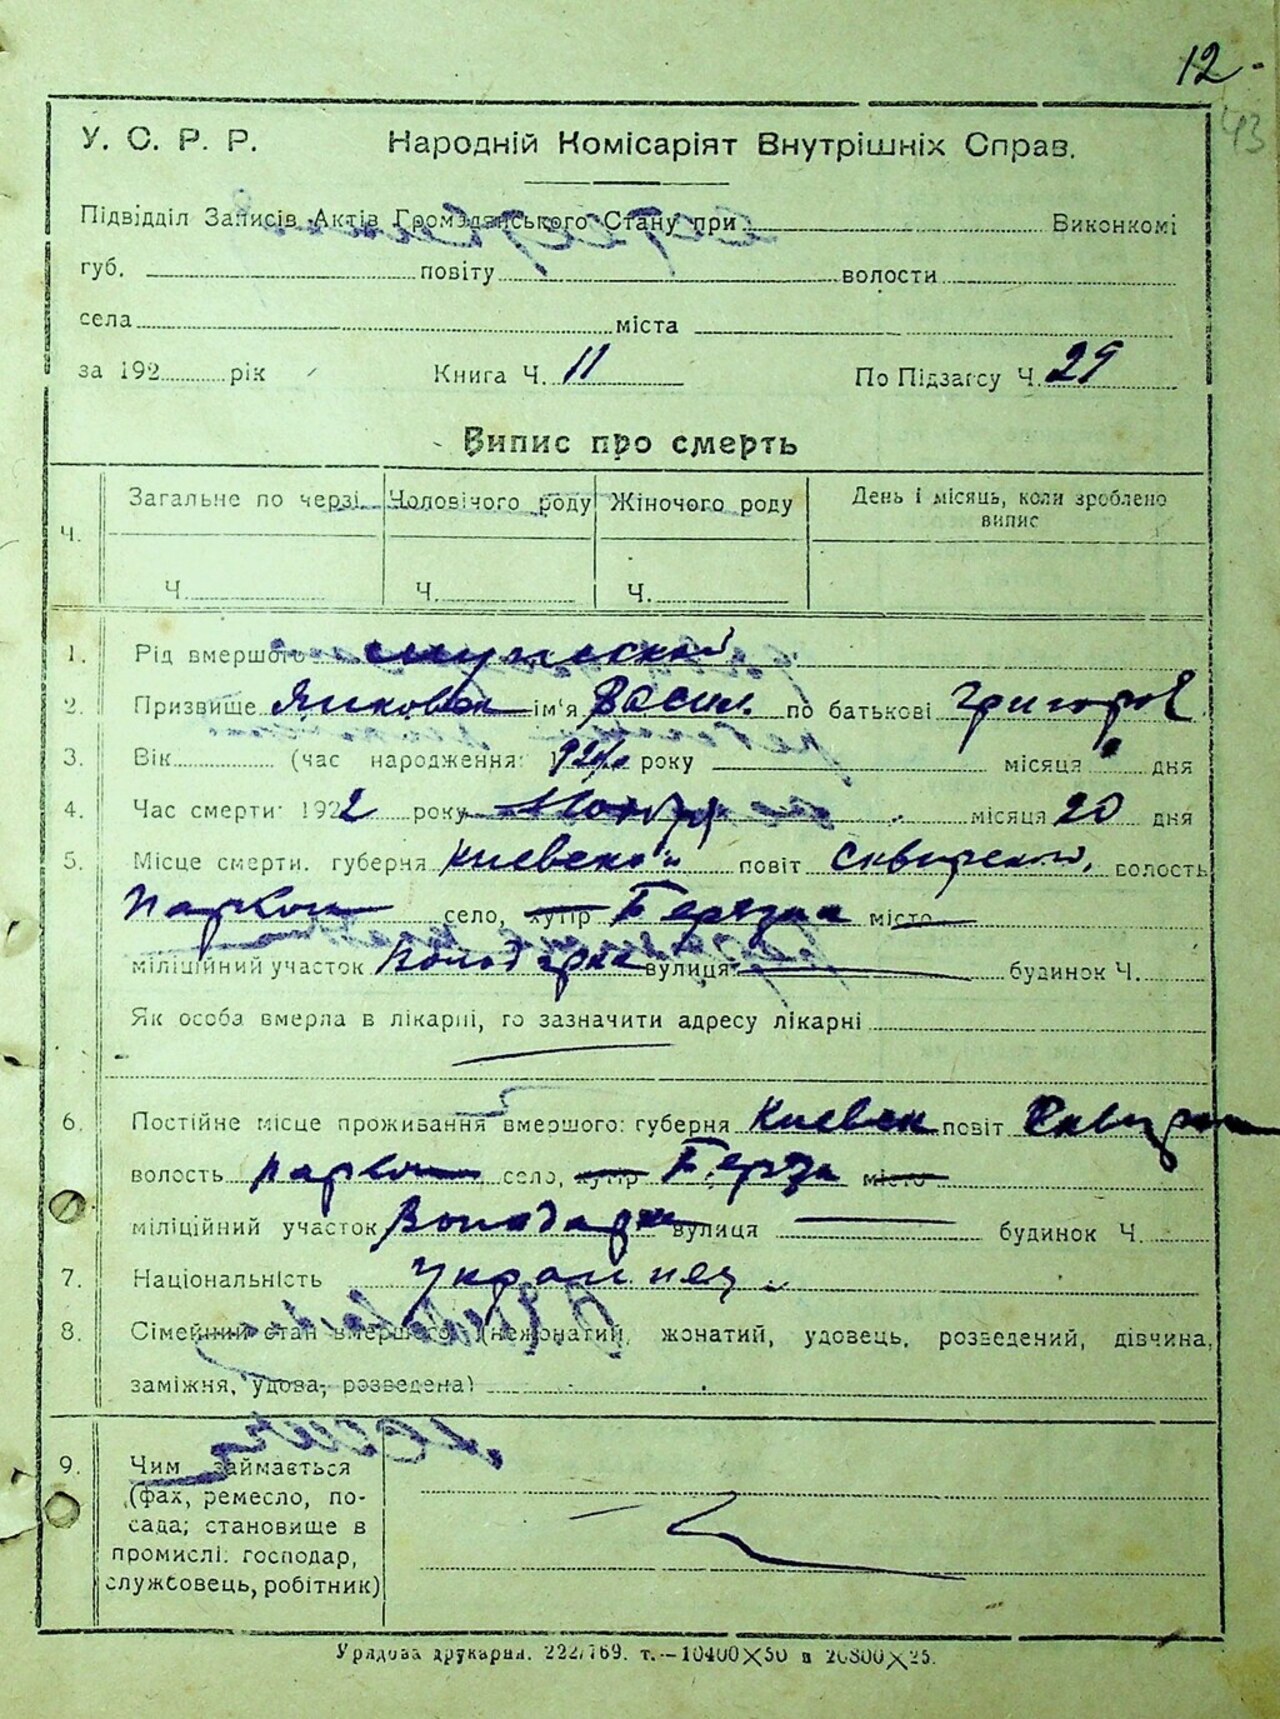 12
43
У. С. Р. Р. Народній Комісаріят Внутрішніх Справ.
Підвідділ Записів Актів Громадянського Стану при Виконкомі
губ. повіту волости
села міста
за 192 рік Книга Ч. 11 По Підзагсу Ч. 29
Випис про смерть
Ч. Загальне по черзі Чоловічого роду Жіночого роду День і місяць, коли зроблено
випис
Ч. Ч. Ч.
1. Рід вмершого
2. Призвище ім'я Васил по батькові Григоров
3. Вік (час народження: року місяця дня
4. Час смерти: 1922 року місяця 20 дня
5. Місце смерти. губерня Киевской повіт Сквирский, волость
село, хутір місто
міліційний участок Володарка вулиця будинок Ч.
Як особа вмерла в лікарні, то зазначити адресу лікарні
6. Постійне місце проживання вмершого: губерня Киевск повіт Сквирск
волость село, хутір місто
міліційний участок Володарка вулиця будинок Ч.
7. Національність Украинец
8. Сімейний стан вмершого (нежонатий, жонатий, удовець, розведений, дівчина,
заміжня, удова, розведена)
9. Чим займається
(фах, ремесло, по-
сада; становище в
промислі: господар,
службовець, робітник)
Урядова друкарня. 222/769. т.—10400×50 и 20800×25.